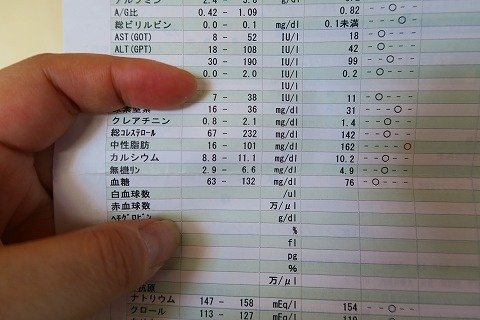 2.4 - 3.8 g/dl
A/G比 0.42 - 1.09 0.82 --○--
総ビリルビン 0.0 - 0.1 mg/dl 0.1未満 ---○-
AST(GOT) 8 - 52 IU/l 18 -○---
ALT(GPT) 18 - 108 IU/l 42 -○---
30 - 190 IU/l 99 --○--
0.0 - 2.0 IU/l 0.2 -○---
IU/l
7 - 38 IU/l 11 -○---
16 - 36 mg/dl 31 ---○-
クレアチニン 0.8 - 2.1 mg/dl 1.4 --○--
総コレステロール 67 - 232 mg/dl 142 --○--
中性脂肪 16 - 101 mg/dl 162 ----○
カルシウム 8.8 - 11.1 mg/dl 10.2 --○--
無機リン 2.9 - 6.6 mg/dl 4.9 --○--
血糖 63 - 132 mg/dl 76 -○---
白血球数 /ul
赤血球数 万/μl
ヘモグロビン g/dl
%
fl
pg
%
万/μl
ナトリウム 147 - 158 mEq/l 154 ---○-
クロール 113 - 127 mEq/l